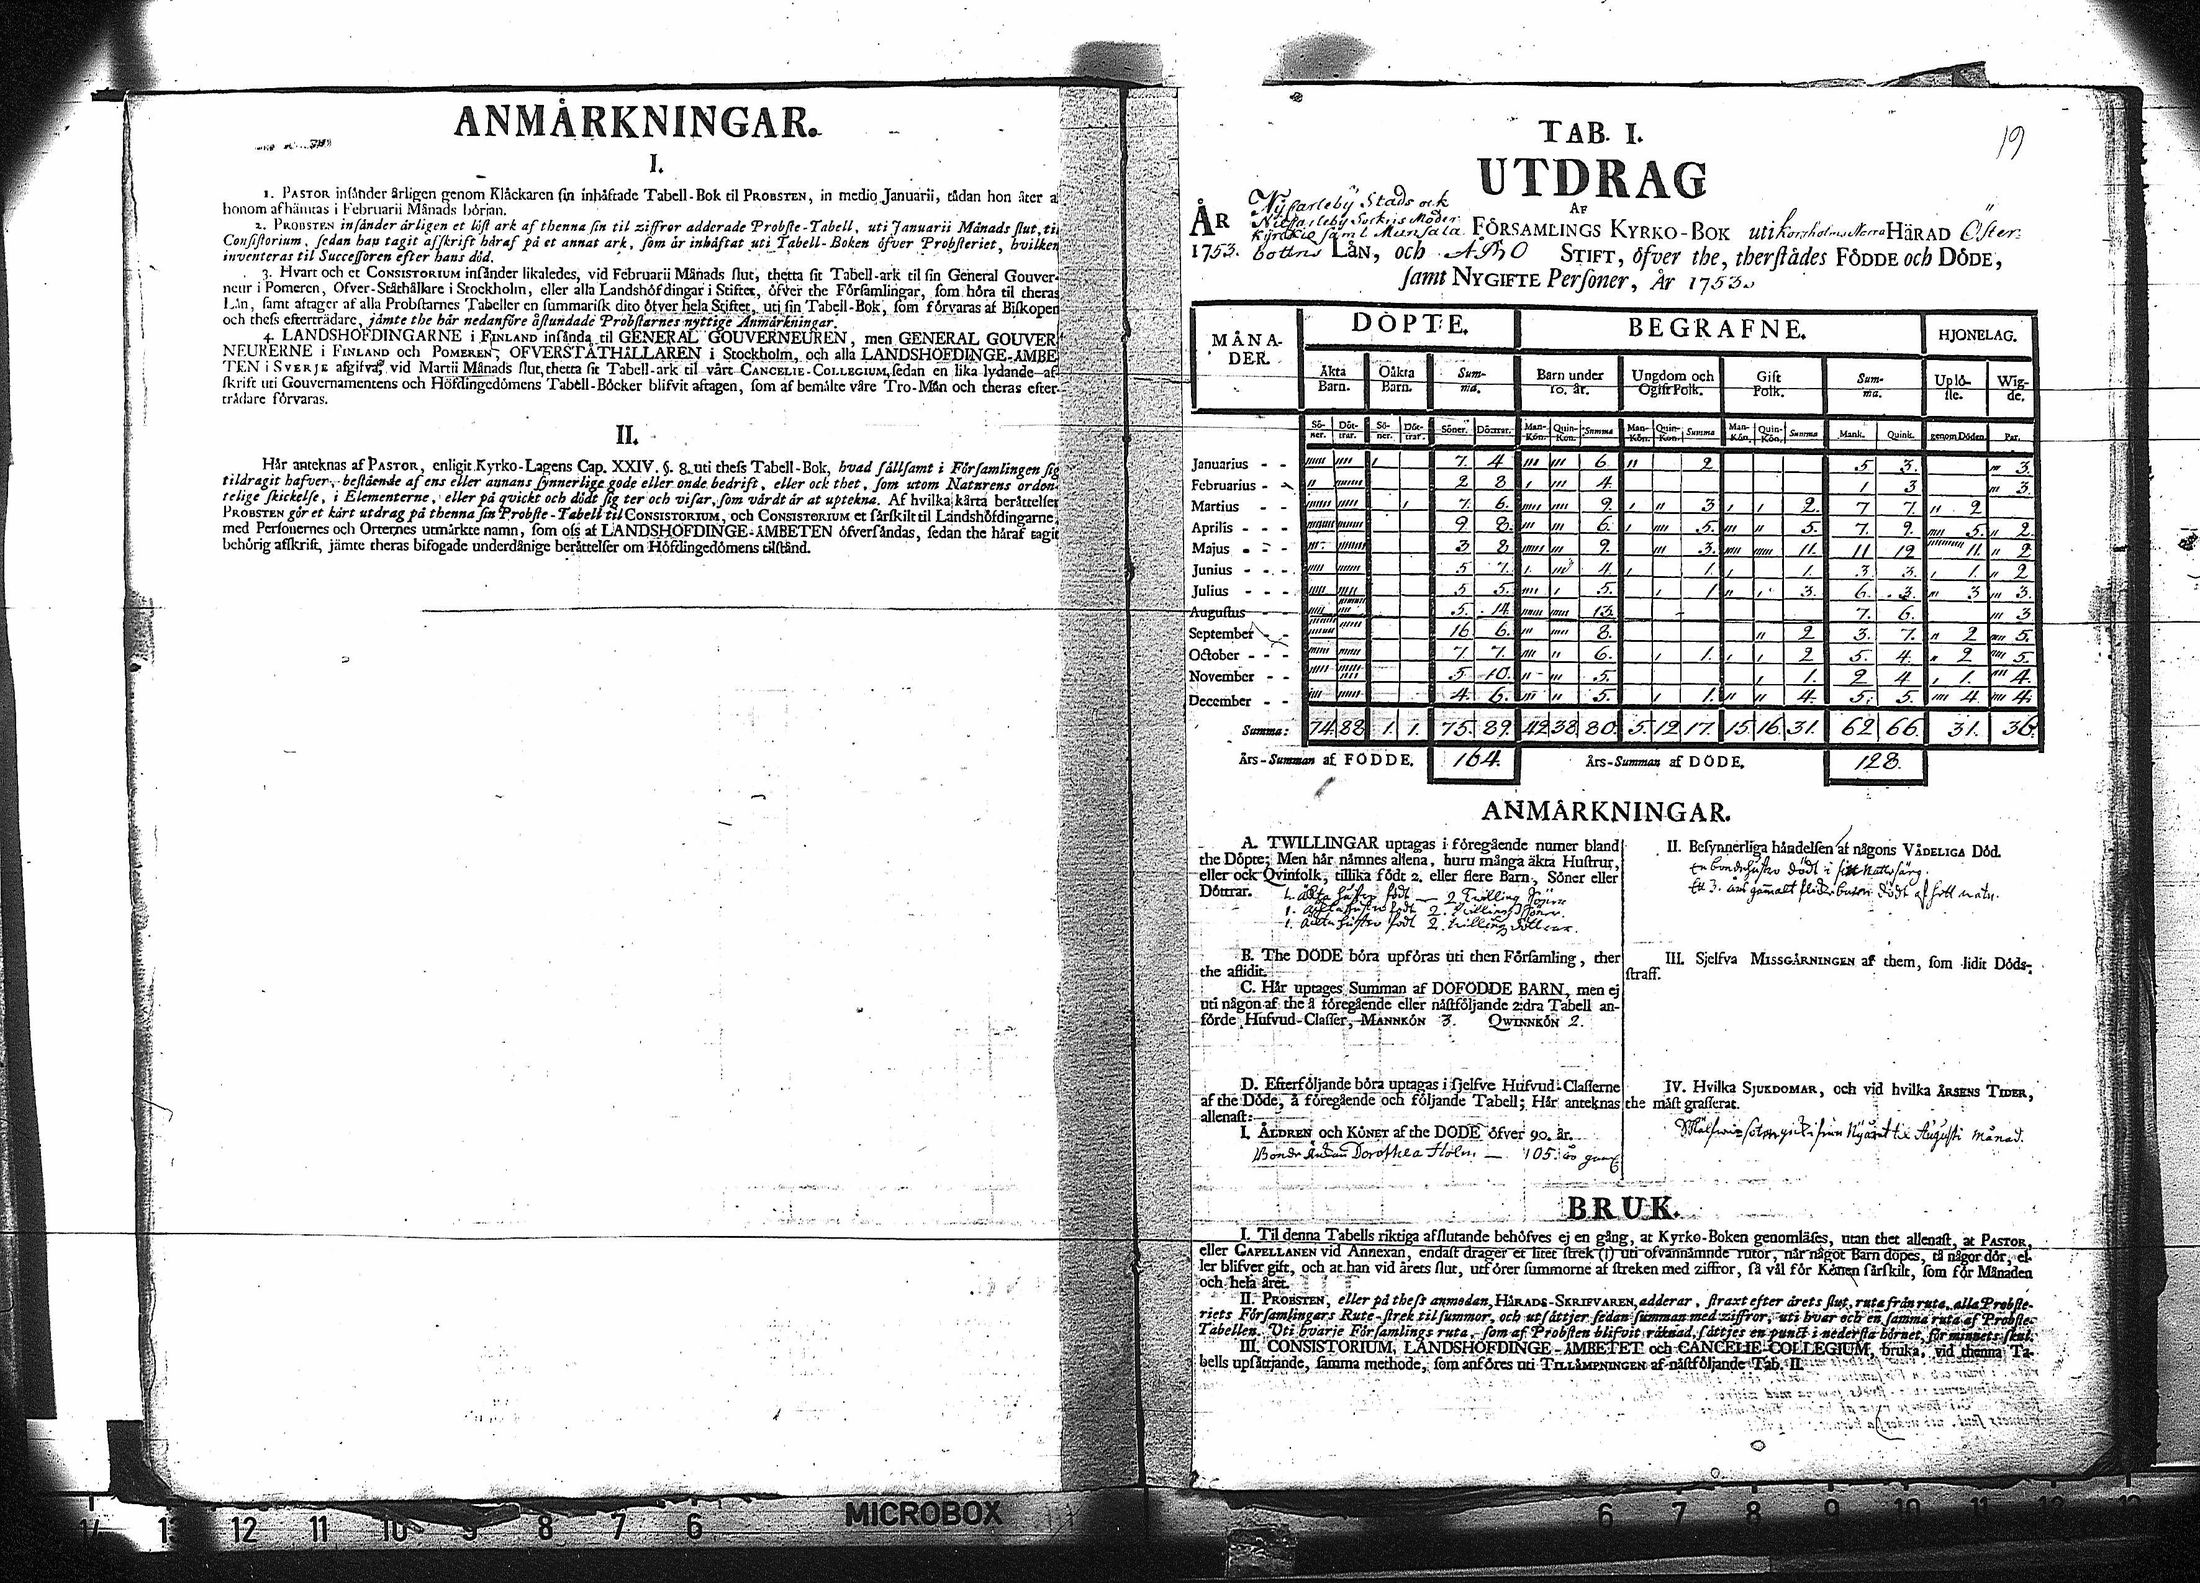 ANMÄRKNINGAR.
I.
1. PASTOR insänder årligen genom Klåckaren sin inhäftade Tabell-Bok til PROBSTEN, in medio Januarii, tådan hon åter af
honom afhämtas i Februarii Månads början.
2. PROBSTEN insänder årligen et löst ark af thenna sin til ziffror adderade Probste-Tabell, uti Januarii Månads slut, til
Consistorium, sedan han tagit afskrift häraf på et annat ark, som är inhäftat uti Tabell-Boken öfver Probsteriet, hvilken
inventeras til Successoren efter hans död.
3. Hvart och et CONSISTORIUM insänder likaledes, vid Februarii Månads slut, thetta sit Tabell-ark til sin General Gouver-
neur i Pomeren, Ofver-Ståthållare i Stockholm, eller alla Landshöfdingar i Stiftet, öfver the Församlingar, som höra til theras
Län, samt aftager af alla Probstarnes Tabeller en summarisk dito öfver hela Stiftet, uti sin Tabell-Bok, som förvaras af Biskopen
och thess efterträdare, jämte the här nedanföre åstundade Probstarnes nyttige Anmärkningar.
4. LANDSHÖFDINGARNE i FINLAND insända til GENERAL GOUVERNEUREN, men GENERAL GOUVER-
NEURERNE i FINLAND och POMEREN, OFVERSTÅTHÅLLAREN i Stockholm, och alla LANDSHÖFDINGE-ÄMBE
TEN i SVERJE afgifva, vid Martii Månads slut, thetta sit Tabell-ark til vårt CANCELIE-COLLEGIUM, sedan en lika lydande af-
skrift uti Gouvernamentens och Höfdingedömens Tabell-Böcker blifvit aftagen, som af bemälte våre Tro-Män och theras efter-
trädare förvaras.
II.
Här anteknas af PASTOR, enligit Kyrko-Lagens Cap. XXIV. §. 8. uti thess Tabell-Bok, hvad sällsamt i Församlingen sig
tildragit hafver, bestående af ens eller annans synnerlige gode eller onde bedrift, eller ock thet, som utom Naturens orden-
telige skickelse, i Elementerne, eller på qvickt och dödt sig ter och visar, som värdt är at uptekna. Af hvilka kärta berättelser
PROBSTEN gör et kårt utdrag på thenna sin Probste-Tabell til CONSISTORIUM, och CONSISTORIUM et särskilt til Landshöfdingarne,
med Personernes och Orternes utmärkte namn, som oss af LANDSHÖFDINGE-ÄMBETEN öfversändas, sedan the häraf tagit
behörig afskrift, jämte theras bifogade underdånige berättelser om Höfdingedömens tilstånd.
19
TAB. I.
UTDRAG
AF
ÅR Nÿcarleby Stads ock
Nÿkarleby Sockns Moder
kÿrckio samt Munsala FÖRSAMLINGS KYRKO-BOK uti Korsholms Norra HÄRAD Öster-
1753. bottns LÄN, och ÅBO STIFT, öfver the, therstädes FÖDDE och DÖDE,
samt NYGIFTE Personer, År 1753.
MÅNA-DER. DÖPTE. BEGRAFNE. HJONELAG.
Äkta Barn. Oäkta Barn. Summa. Barn under 10. år. Ungdom och Ogift Folk. Gift Folk. Summa. Uplöste. Wigde.
Söner. Döttrar. Söner. Döttrar. Söner. Döttrar. Man-Kön. Quin-Kön. Summa Man-Kön. Quin-Kön. Summa Man-Kön. Quin-Kön. Summa Mank. Quink. genom Döden. Par.
Januarius - - 7. 4 6. 2 5 3. 3.
Februarius - - 2 8 4. 1 3 3.
Martius - - 7. 6. 9. 3 2. 7 7. 2
Aprilis - - - 9 8. 6. 5. 5. 7. 9. 5. 2.
Majus - - - 3 8 9. 3. 11. 11 12 11. 2
Junius - - - 5 7. 4. 1. 1. 3. 3. 1. 2
Julius - - - 5 5. 5. 1 3. 6. 3. 3 3.
Augustus - - - 5. 14. 13. 7. 6. 3
September - - 16 6. 8. 2 3. 7. 2 5.
October - - - 7. 7. 6. 1. 2 5. 4. 2 5.
November - - 5 10. 5. 1. 2 4 1. 4.
December - - 4 6. 5. 1. 4. 5. 5. 4 4.
Summa: 74. 88 1. 1. 75. 89. 42 38. 80. 5. 12 17. 15. 16. 31. 62 66. 31. 36.
Års-Summan af FÖDDE. 164. Års-Summan af DÖDE. 128.
ANMÄRKNINGAR.
A. TWILLINGAR uptagas i föregående numer bland
the Döpte; Men här nämnes allena, huru många äkta Hustrur,
eller ock Qvinfolk, tillika födt 2. eller flere Barn, Söner eller
Döttrar. 1. äkta hustru födt — 2 Twilling Söner
1. äkta hustru födt 2. twilling söner.
1. äkta hustru födt 2. twilling döttrar.
B. The DÖDE böra upföras uti then Församling, ther
the aflidit.
C. Här uptages Summan af DÖFÖDDE BARN, men ej
uti någon af the å föregående eller nästföljande 2:dra Tabell an-
förde Hufvud-Classer, MANNKÖN 3. QWINNKÖN 2.
D. Efterföljande böra uptagas i sjelfve Hufvud-Classerne
af the Döde, å föregående och följande Tabell; Här anteknas
allenast:
I. ÅLDREN och KÖNET af the DÖDE öfver 90. år.
Dorothea Holm — 105. år
II. Besynnerliga händelsen af någons VÅDELIGA Död.
En bondehustru dödt i
Ett 3. års gamalt
III. Sjelfva MISSGÄRNINGEN af them, som lidit Döds-
straff.
IV. Hvilka SJUKDOMAR, och vid hvilka ÅRSENS TIDER,
the mäst grasserat.
från Nyåret til Augusti månad.
BRUK.
I. Til denna Tabells riktiga afslutande behöfves ej en gång, at Kyrko-Boken genomläses, utan thet allenast, at PASTOR,
eller CAPELLANEN vid Annexan, endast drager et litet strek (I) uti ofvannämnde rutor, når något Barn döpes, tå någor dör, el-
ler blifver gift, och at han vid årets slut, utförer summorne af streken med ziffror, så väl för Könen särskilt, som för Månaden
och hela året.
II. PROBSTEN, eller på thess anmodan, HÄRADS-SKRIFVAREN, adderar, straxt efter årets slut, ruta från ruta, alla Probste-
riets Församlingars Rute-strek til summor, och utsättjer sedan summan med ziffror, uti hvar och en samma ruta af Probste-
Tabellen. Uti hvarje Församlings ruta, som af Probsten blifvit räknad, sättjes en punct i nedersta hörnet, för minnets skul.
III. CONSISTORIUM, LANDSHÖFDINGE-ÄMBETET och CANCELIE-COLLEGIUM, bruka, vid thenna Ta-
bells upsättjande, samma methode, som anföres uti TILLÄMPNINGEN af nästföljande Tab. II.
MICROBOX
14 13 12 11 10 9 8 7 6 6 7 8 9 10 11 12 13